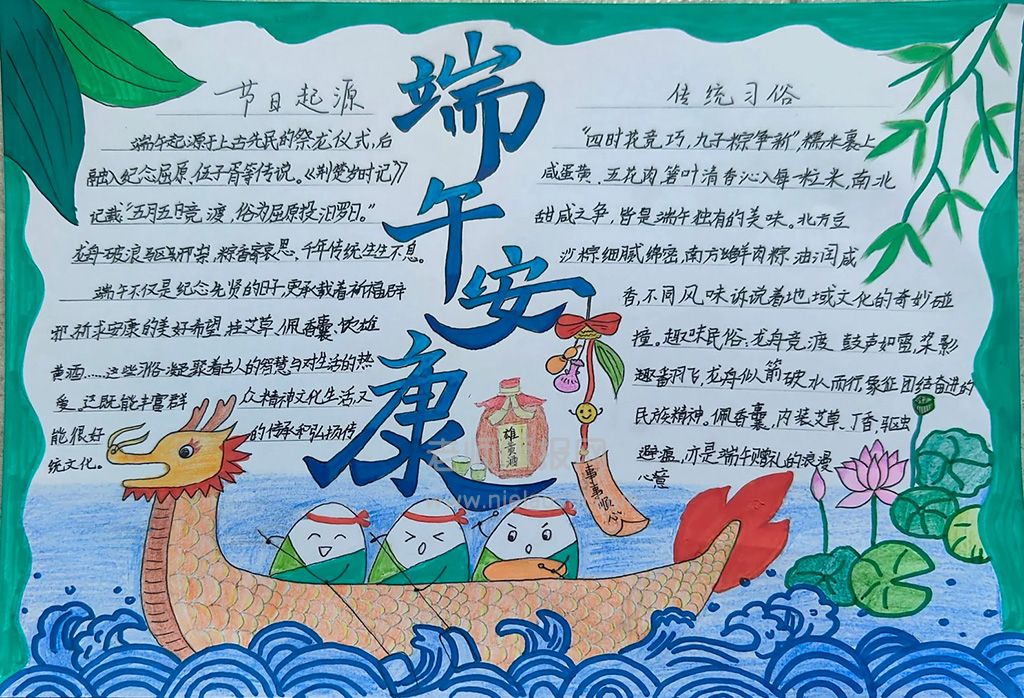 端午安康
节日起源
端午起源于上古先民的祭龙仪式,后
融入纪念屈原、伍子胥等传说。《荆楚岁时记》
记载"五月五日竞渡,俗为屈原投汨罗日。"
龙舟破浪驱邪祟,粽香寄哀思、千年传统生生不息。
端午不仅是纪念先贤的日子,更承载着祈福辟
邪、祈求安康的美好希望,挂艾草、佩香囊、饮雄
黄酒……这些习俗凝聚着古人的智慧与对生活的热
爱。这既能丰富群众精神文化生活又
能很好的传承和弘扬传
统文化。
传统习俗
"四时花竞巧,九子粽争新",糯米裹上
咸蛋黄、五花肉,箬叶清香沁入每一粒米,南北
甜咸之争,皆是端午独有的美味。北方豆
沙粽细腻绵密,南方鲜肉粽油润咸
香,不同风味诉说着地域文化的奇妙碰
撞。趣味民俗,龙舟竞渡,鼓声如雷,桨影
翻飞,龙舟似箭破水而行,象征团结奋进的
民族精神。佩香囊,内装艾草、丁香,驱虫
避瘟,亦是端午赠礼的浪漫
心意
雄黄酒
事事顺心